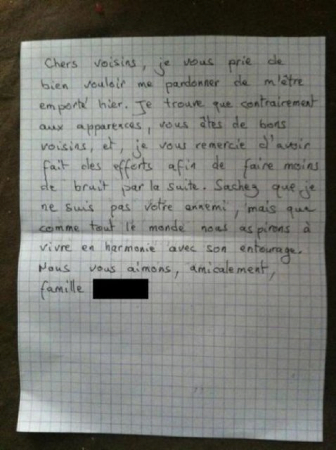 Chers voisins, je vous prie de
bien vouloir me pardonner de m'être
emporté hier. Je trouve que contrairement
aux apparences, vous êtes de bons
voisins, et, je vous remercie d'avoir
fait des efforts afin de faire moins
de bruit par la suite. Sachez que je
ne suis pas votre annemi, mais que
comme tout le monde nous aspirons à
vivre en harmonie avec son entourage.
Nous vous aimons, amicalement,
famille